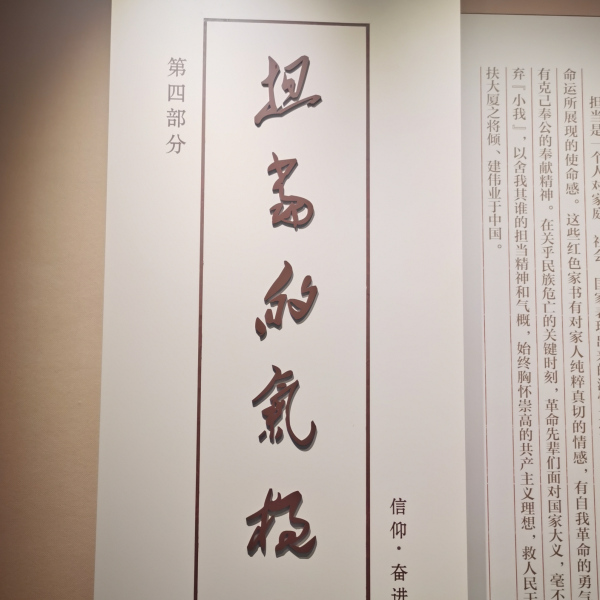 第四部分
担當的氣概
信仰·奋进
担当是一个人对家庭
命运所展现的使命感。这些红色家书有对家人纯粹真切的情感，有自我革命的勇气
有克己奉公的奉献精神。在关乎民族危亡的关键时刻，革命先辈们面对国家大义，毫不
弃『小我』，以舍我其谁的担当精神和气概，始终胸怀崇高的共产主义理想，救人民于
扶大厦之将倾、建伟业于中国。